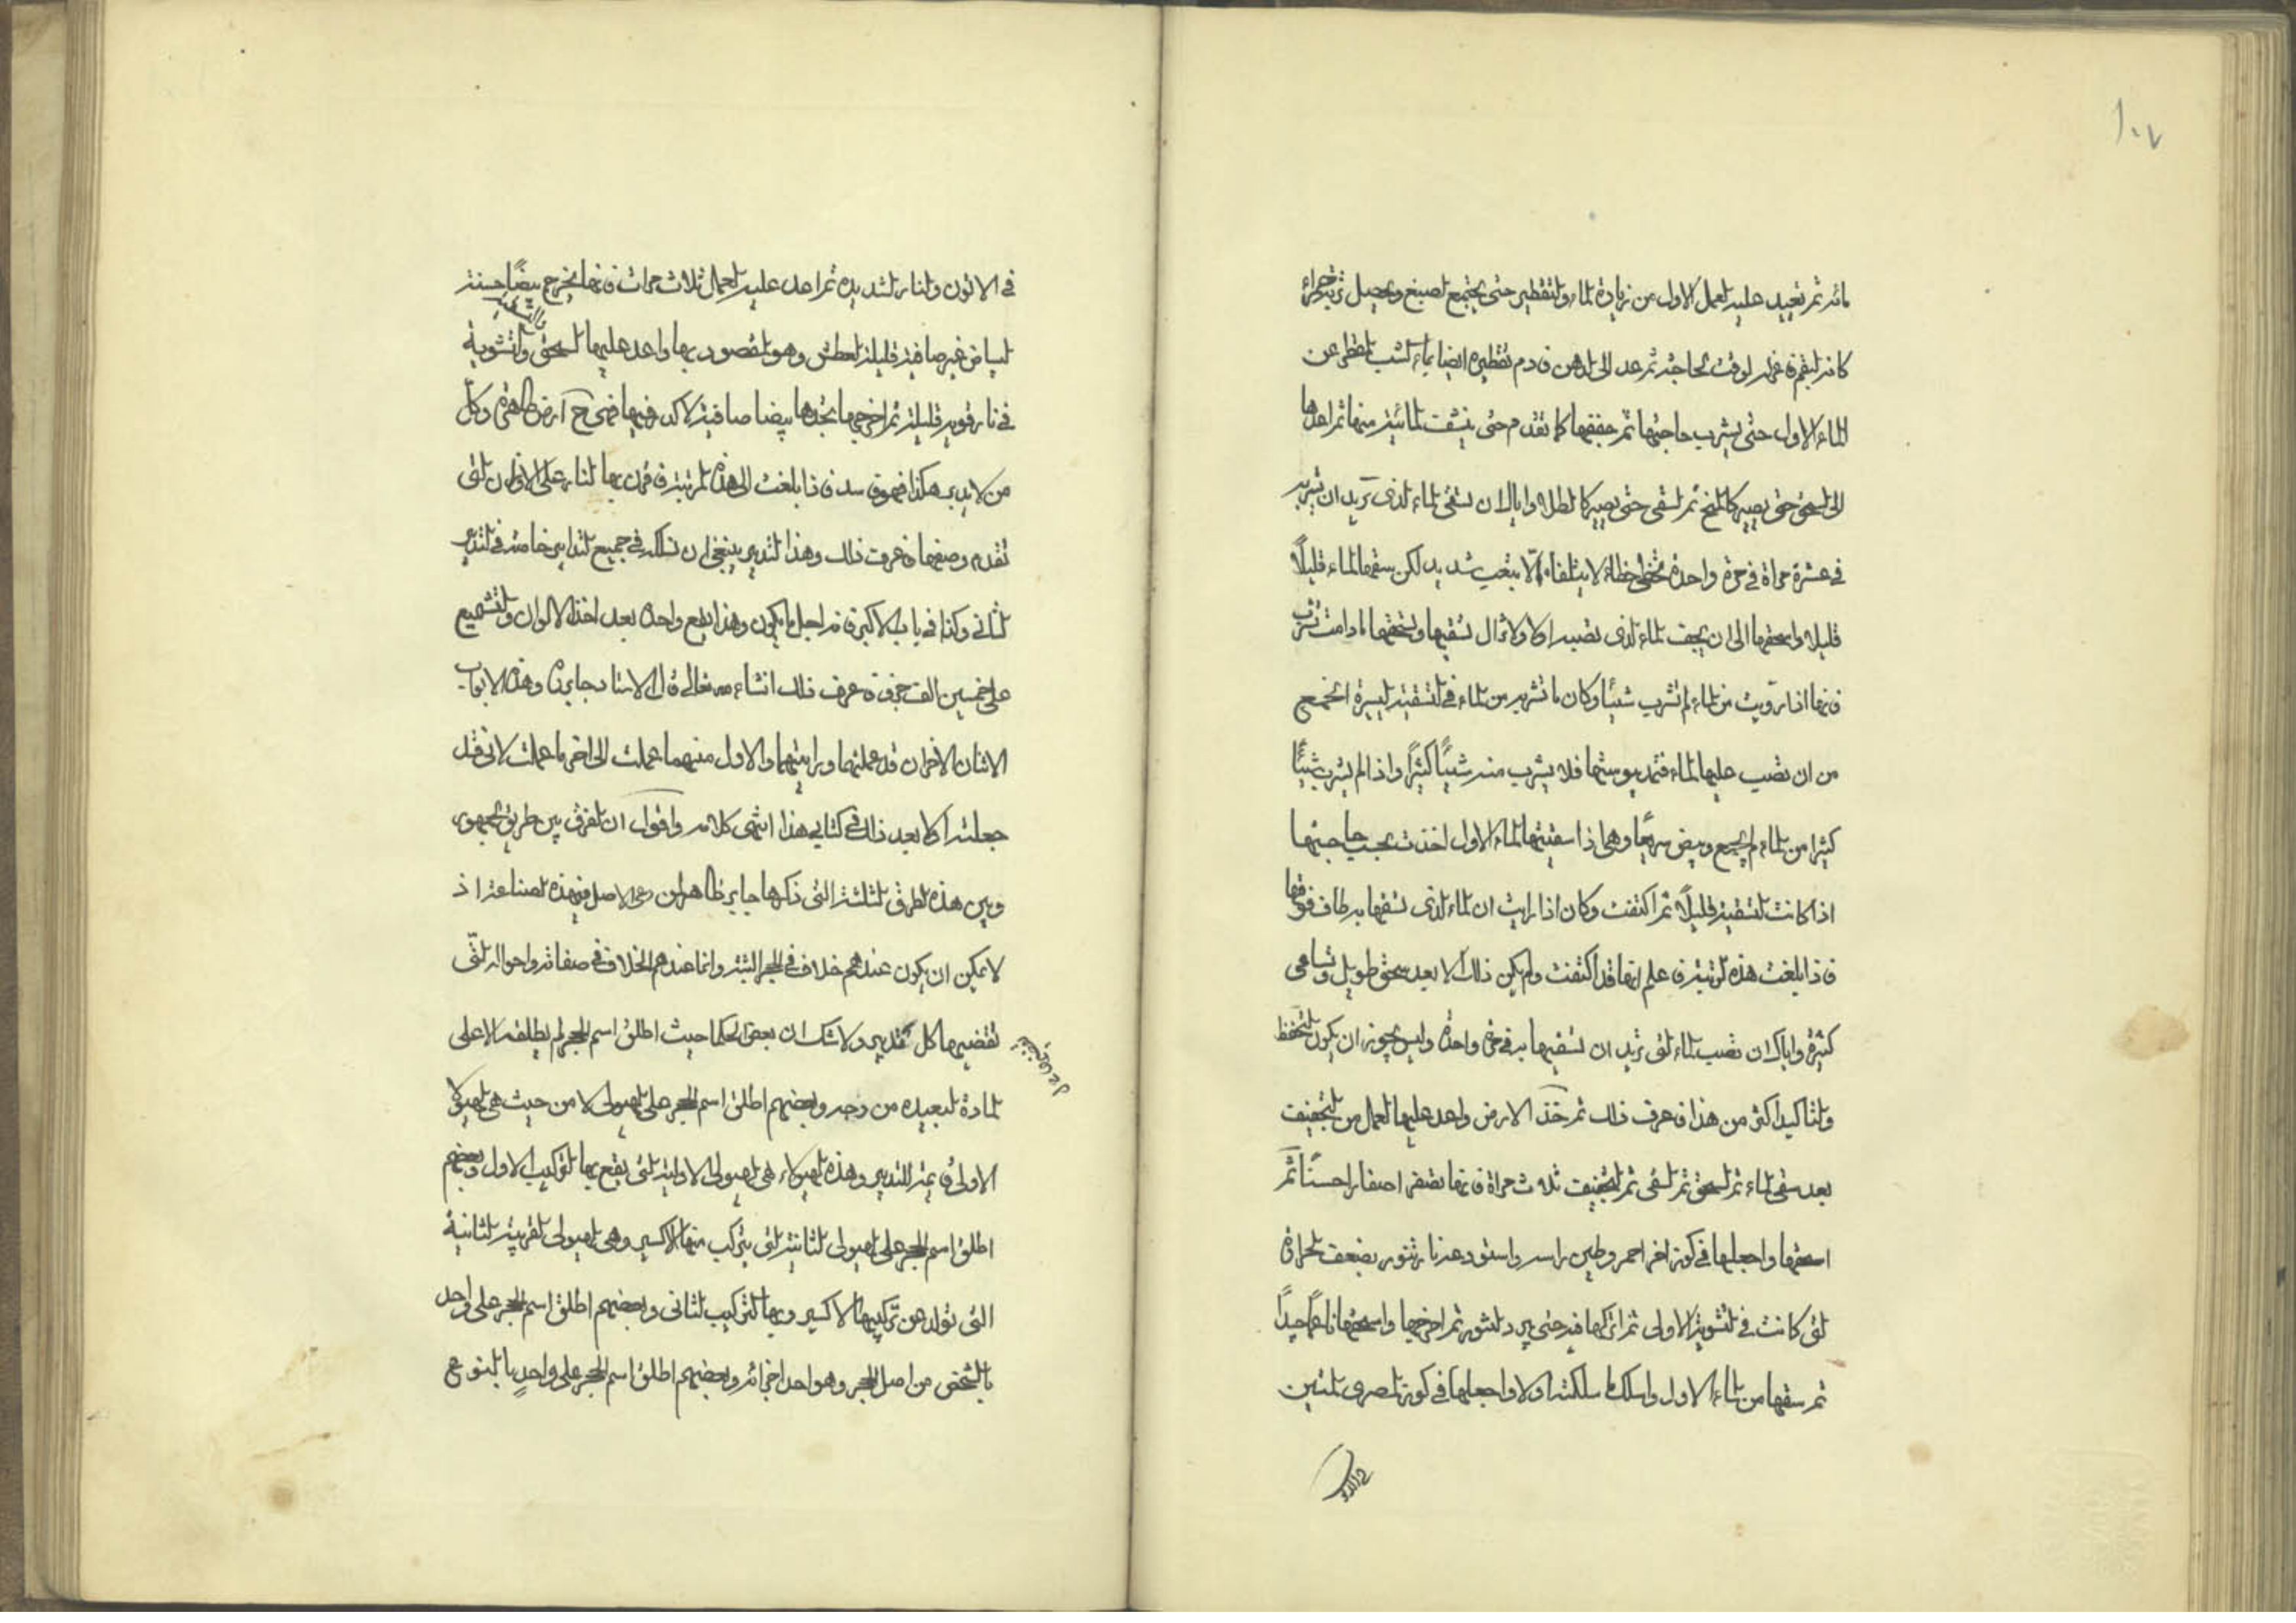 ١٠٧
مائه ثم تعيد عليه العمل الاول من زيادة الماء والتقطير حتى يجتمع الصبغ ويحصل تربته حمراء
كانه البقم فاعزله لوقت الحاجة ثم عد الى الدهن فادم تقطيره ايضا بماء الشب المقطر عن
الماء الاول حتى يشرب حاجتها ثم جففها كما تقدم حتى ينشف المائية منها ثم اعدها
الى السحق حتى يصير كالمخ ثم تسقى حتى يصير كالطلا واياك ان تسقى الماء الذى تريد ان تشربه
فى عشرة مراة فى مرة واحدة فتخطى خطاء لا يتلفاه الّا بتعب شديد لكن سقها الماء قليلاً
قليلا واسحقها الى ان يجف الماء الذى تصبه اولا ولا تزال تسقيها وتسحقها مادامت تشرب
فانها اذا رويت من الماء لم تشرب شيئاً وكان ما تشربه من الماء فى التسقية اليسيرة انجع
من ان تصب عليها الماء فتمد يبوستها فلا يشرب منه شيئاً كثيراً واذا لم يشرب شيئاً
كثيرا من الماء لم يجمع وبيض سريعا وهى اذا سقيتها الماء الاول اخذت بحسب حاجتها
اذا كانت التسقية قليلاً ثم اكتفت وكان اذا رايت ان الماء الذى تسقها به طاف فوقها
فاذا بلغت هذه المرتبة فاعلم انها قد اكتفت ولم يكن ذلك الا بعد سحق طويل وتساقى
كثيرة واياك ان تصب الماء التى تريد ان تسقيها به فى مرة واحدة وليس يجوز ان يكون التحفظ
والتاكيد اكثر من هذا فاعرف ذلك ثم خذ الارض واعد عليها العمل من التجفيف
بعد سقى الماء ثم السحق ثم السقى ثم التجفيف ثلاث مراة فانها تصفر اصفارا حسنًا ثمّ
اسحقها واجعلها فى كوز اخر احمر وطين راسه واستودعه نار تنور بضعف الحرارة
التى كانت فى التشوية الاولى ثم اتركها فيه حتى يبرد التنور ثم اخرجها واسحقها ناعماً جيدًا
ثم سقها من الماء الاول واسلك ما سلكته اولا واجعلها فى كوز المصرى المتين
فى الاتون والنار الشديده ثم اعد عليه العمل ثلاث مرات فانها يخرج بيضًا حسنة
البياض غير صافية قليلة العطش وهو المقصود بها واعد عليها السحق والتشوية
فى نار قوية قليلة ثم اخرجها تجدها بيضا صافية لا كدر فيها فهى ح ارض طاهرة وكلّ
من لا يدبر هكذا فهو فاسد فاذا بلغت الى هذه المرتبة فاقرن بها النار على الاوزان التى
تقدم وصفها فاعرف ذلك وهذا التدبير ينبغى ان نسلكه فى جميع التدابير خاصة فى التدبير
الثانى وكذا فى باب الاكبر فانه اجل ما يكون وهذا يقع واحده بعد اخذ الالوان والتشميع
على خمسين الف جزؤ فاعرف ذلك انشاء الله تعالى قال الاستاد جابر ره وهذه الابواب
الاثنان الاخران قد عملتها ورايتهما والاول منهما عملت الى اخر ما عملت لانى قد
جعلته اولا بعد ذلك فى كتابى هذا انتهى كلامه واقول ان الفرق بين طريق الجمهور
وبين هذه الطرق الثلثة التى ذكرها جابر ظاهر من وعى الاصل فى هذه الصناعة اذ
لا يمكن ان يكون عندهم خلاف فى الحجر البتة وانما عندهم الخلاف فى صفاته واحواله التّى
تقضيها كل تدبير ولا شك ان بعض الحكما حيث اطلق اسم الحجر لم يطلقه الا على
المادة البعيده من وجه وبعضهم اطلق اسم الحجر على الهيولى لا من حيث هى الهيولا
الاولى فى ثمرة التدبير وهذه الهيولاء هى الهيولى الاولية التى يقع بها التركيب الاول وبعضهم
اطلق اسم الحجر على الهيولى الثانية التى يتركب منها الاكسير وهى الهيولى القريبة الثانية
التى تولد عن تركيبها الاكسير وبها التركيب الثانى وبعضهم اطلق اسم الحجر على واحد
بالشخص من اصل الحجر وهو احد اجزائه وبعضهم اطلق اسم الحجر على واحدٍ بالنوع